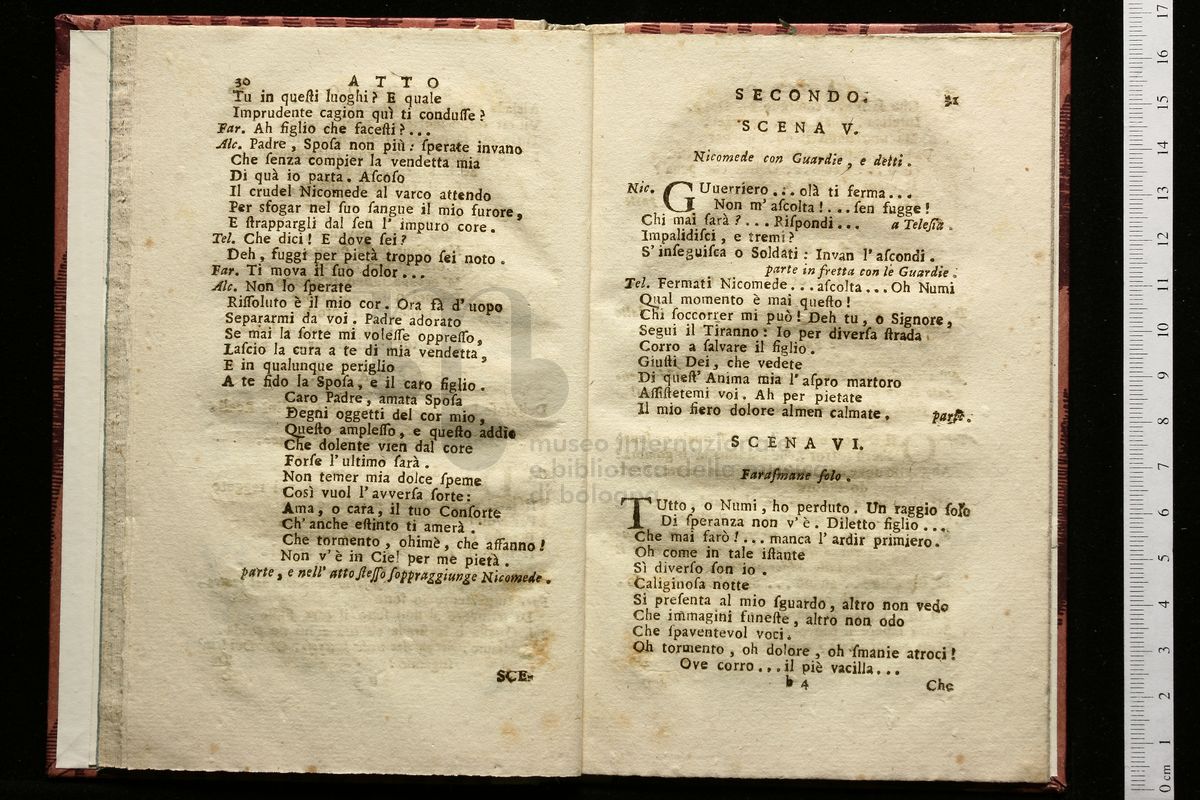 30 ATTO
Tu in queſti luoghi? E quale
Imprudente cagion quì ti conduſſe?
Far. Ah figlio che faceſti?...
Alc. Padre, Spoſa non più: ſperate invano
Che ſenza compier la vendetta mia
Di quà io parta. Aſcoſo
Il crudel Nicomede al varco attendo
Per sfogar nel ſuo ſangue il mio furore,
E ſtrappargli dal ſen l' impuro core.
Tel. Che dici! E dove ſei?
Deh, fuggi per pietà troppo ſei noto.
Far. Ti mova il ſuo dolor...
Alc. Non lo ſperate
Riſſoluto è il mio cor. Ora fà d' uopo
Separarmi da voi. Padre adorato
Se mai la ſorte mi voleſſe oppreſſo,
Laſcio la cura a te di mia vendetta,
E in qualunque periglio
A te fido la Spoſa, e il caro figlio.
Caro Padre, amata Spoſa
Degni oggetti del cor mio,
Queſto ampleſſo, e queſto addio
Che dolente vien dal core
Forſe l' ultimo ſarà.
Non temer mia dolce ſpeme
Così vuol l' avverſa ſorte:
Ama, o cara, il tuo Conſorte
Ch' anche eſtinto ti amerà.
Che tormento, ohimè, che affanno!
Non v' è in Ciel per me pietà.
parte, e nell' atto ſteſſo ſoppraggiunge Nicomede.
SCE-
SECONDO. 31
SCENA V.
Nicomede con Guardie, e detti.
Nic. GUuerriero...olà ti ferma...
Non m' aſcolta!...ſen fugge!
Chi mai ſarà?...Riſpondi... a Teleſia.
Impalidiſci, e tremi?
S' inſeguiſca o Soldati: Invan l' aſcondi.
parte in fretta con le Guardie.
Tel. Fermati Nicomede...aſcolta...Oh Numi
Qual momento è mai queſto!
Chi ſoccorrer mi può! Deh tu, o Signore,
Segui il Tiranno: Io per diverſa ſtrada
Corro a ſalvare il figlio.
Giuſti Dei, che vedete
Di queſt' Anima mia l' aſpro martoro
Aſſiſtetemi voi. Ah per pietate
Il mio fiero dolore almen calmate. parte.
SCENA VI.
Faraſmane ſolo.
TUtto, o Numi, ho perduto. Un raggio ſolo
Di ſperanza non v' è. Diletto figlio...
Che mai farò!...manca l' ardir primiero.
Oh come in tale iſtante
Sì diverſo ſon io.
Caliginoſa notte
Si preſenta al mio ſguardo, altro non vedo
Che immagini funeſte, altro non odo
Che ſpaventevol voci.
Oh tormento, oh dolore, oh ſmanie atroci!
Ove corro...il piè vacilla...
b 4 Che
museo internazionale
e biblioteca della
di bologna
0 cm 1 2 3 4 5 6 7 8 9 10 11 12 13 14 15 16 17